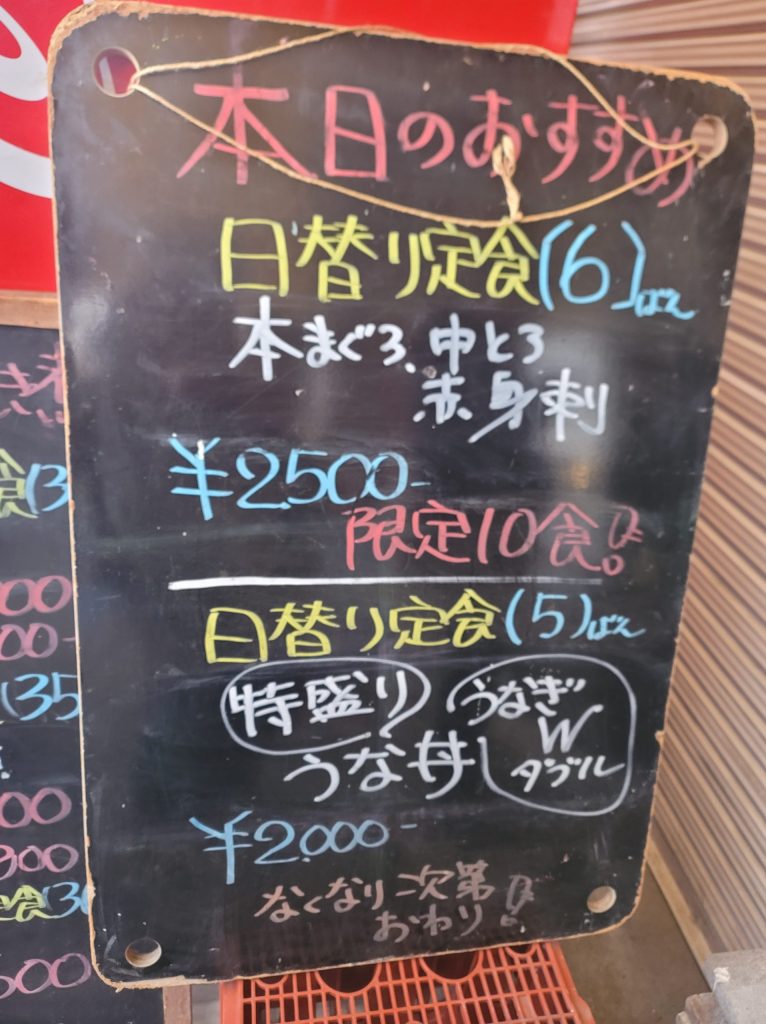 本日のおすすめ
日替り定食(6)ばん
本まぐろ、中とろ
赤身刺
¥2500-
限定10食!
日替り定食(5)ばん
特盛り
うな丼
うなぎ
W
ダブル
¥2.000-
なくなり次第
おわり!
食(3
00
00-
(35
00
900
定食(36
500